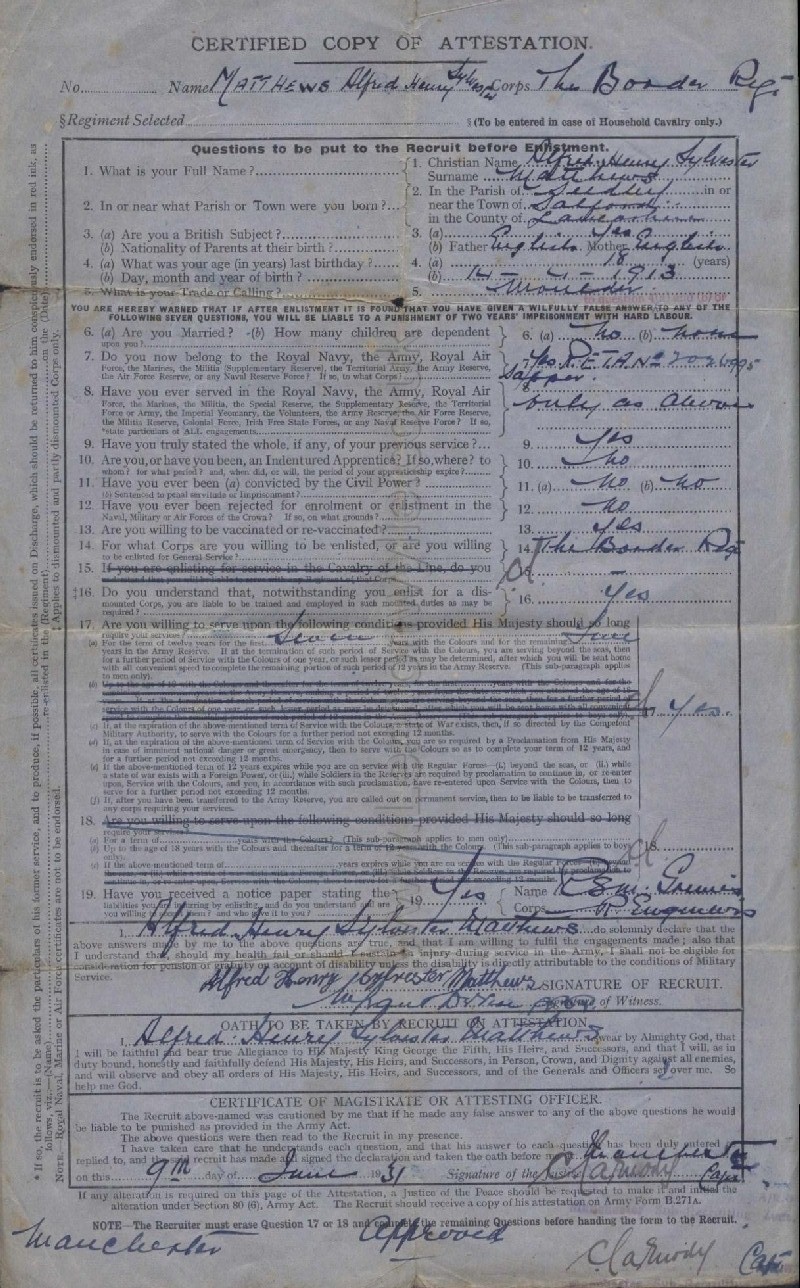 CERTIFIED COPY OF ATTESTATION.
No. Name MATTHEWS Alfred Henry Sylvester Corps The Border Regt
§Regiment Selected §(To be entered in case of Household Cavalry only.)
Questions to be put to the Recruit before Enlistment.
1. What is your Full Name? 1. Christian Name Alfred Henry Sylvester
Surname Matthews
2. In or near what Parish or Town were you born? 2. In the Parish of Seedley in or
near the Town of Salford
in the County of Lancashire
3. (a) Are you a British Subject? 3. (a) Yes
(b) Nationality of Parents at their birth? (b) Father English Mother English
4. (a) What was your age (in years) last birthday? 4. (a) 18 (years)
(b) Day, month and year of birth? (b) 14 - 4 - 1913
5. What is your Trade or Calling? 5. Moulder
YOU ARE HEREBY WARNED THAT IF AFTER ENLISTMENT IT IS FOUND THAT YOU HAVE GIVEN A WILFULLY FALSE ANSWER TO ANY OF THE
FOLLOWING SEVEN QUESTIONS, YOU WILL BE LIABLE TO A PUNISHMENT OF TWO YEARS' IMPRISONMENT WITH HARD LABOUR.
6. (a) Are you Married? (b) How many children are dependent
upon you? 6. (a) no (b) none
7. Do you now belong to the Royal Navy, the Army, Royal Air
Force, the Marines, the Militia (Supplementary Reserve), the Territorial Army, the Army Reserve,
the Air Force Reserve, or any Naval Reserve Force? If so, to what Corps? Yes R.E. T.A. No
Sapper.
8. Have you ever served in the Royal Navy, the Army, Royal Air
Force, the Marines, the Militia, the Special Reserve, the Supplementary Reserve, the Territorial
Force or Army, the Imperial Yeomanry, the Volunteers, the Army Reserve, the Air Force Reserve,
the Militia Reserve, Colonial Force, Irish Free State Forces, or any Naval Reserve Force? If so,
*state particulars of ALL engagements only as above
9. Have you truly stated the whole, if any, of your previous service? 9. Yes
10. Are you, or have you been, an Indentured Apprentice? If so, where? to
whom? for what period? and, when did, or will, the period of your apprenticeship expire? 10. no
11. Have you ever been (a) convicted by the Civil Power?
(b) Sentenced to penal servitude or Imprisonment? 11. (a) no (b) no
12. Have you ever been rejected for enrolment or enlistment in the
Naval, Military or Air Forces of the Crown? If so, on what grounds? 12. no
13. Are you willing to be vaccinated or re-vaccinated? 13. yes
14. For what Corps are you willing to be enlisted, or are you willing
to be enlisted for General Service? 14. The Border Regt
15. If you are enlisting for service in the Cavalry of the Line, do you
–
‡16. Do you understand that, notwithstanding you enlist for a dis-
mounted Corps, you are liable to be trained and employed in such mounted duties as may be
required? 16. Yes
17. Are you willing to serve upon the following conditions provided His Majesty should so long
require your services?
(a) For a term of twelve years for the first seven years with the Colours and for the remaining five
years in the Army Reserve. If at the termination of such period of Service with the Colours, you are serving beyond the seas, then
for a further period of Service with the Colours of one year, or such lesser period as may be determined, after which you will be sent home
with all convenient speed to complete the remaining portion of such period of 12 years in the Army Reserve. (This sub-paragraph applies
to men only).
17. Yes.
(c) If, at the expiration of the above-mentioned term of Service with the Colours, a state of War exists, then, if so directed by the Competent
Military Authority, to serve with the Colours for a further period not exceeding 12 months.
(d) If, at the expiration of the above-mentioned term of Service with the Colours, you are so required by a Proclamation from His Majesty
in case of imminent national danger or great emergency, then to serve with the Colours so as to complete your term of 12 years, and
for a further period not exceeding 12 months.
(e) If the above-mentioned term of 12 years expires while you are on service with the Regular Forces—(i.) beyond the seas, or (ii.) while
a state of war exists with a Foreign Power, or (iii.) while Soldiers in the Reserves are required by proclamation to continue in, or re-enter
upon, Service with the Colours, and you, in accordance with such proclamation, have re-entered upon Service with the Colours, then to
serve for a further period not exceeding 12 months.
(f) If, after you have been transferred to the Army Reserve, you are called out on permanent service, then to be liable to be transferred to
any corps requiring your services.
18. Are you willing to serve upon the following conditions provided His Majesty should so long
require your services?
(a) For a term of years with the Colours? (This sub-paragraph applies to men only)
(b) Up to the age of 18 years with the Colours and thereafter for a term of 12 years with the Colours. (This sub-paragraph applies to boys
only).
(c) If the above-mentioned term of years expires while you are on service with the Regular Forces
18.
19. Have you received a notice paper stating the
liabilities you are incurring by enlisting, and do you understand and are
you willing to accept them? and who gave it to you? 19. Yes Name
Corps R. Engineers
I, Alfred Henry Sylvester Matthews do solemnly declare that the
above answers made by me to the above questions are true, and that I am willing to fulfil the engagements made; also that
I understand that, should my health fail or should I sustain an injury during service in the Army, I shall not be eligible for
consideration for pension or gratuity on account of disability unless the disability is directly attributable to the conditions of Military
Service.
Alfred Henry Sylvester Matthews SIGNATURE OF RECRUIT.
Signature of Witness.
OATH TO BE TAKEN BY RECRUIT ON ATTESTATION.
I, Alfred Henry Sylvester Matthews swear by Almighty God, that
I will be faithful and bear true Allegiance to His Majesty King George the Fifth, His Heirs, and Successors, and that I will, as in
duty bound, honestly and faithfully defend His Majesty, His Heirs, and Successors, in Person, Crown, and Dignity against all enemies,
and will observe and obey all orders of His Majesty, His Heirs, and Successors, and of the Generals and Officers set over me. So
help me God.
CERTIFICATE OF MAGISTRATE OR ATTESTING OFFICER.
The Recruit above-named was cautioned by me that if he made any false answer to any of the above questions he would
be liable to be punished as provided in the Army Act.
The above questions were then read to the Recruit in my presence.
I have taken care that he understands each question, and that his answer to each question has been duly entered as
replied to, and the said recruit has made and signed the declaration and taken the oath before me at Manchester
on this 9th day of June 1931 Signature of the Justice Capt
If any alteration is required on this page of the Attestation, a Justice of the Peace should be requested to make it and initial the
alteration under Section 80 (6), Army Act. The Recruit should receive a copy of his attestation on Army Form B.271A.
NOTE—The Recruiter must erase Question 17 or 18 and complete the remaining Questions before handing the form to the Recruit.
Manchester Approved
Capt
* If so, the recruit is to be asked the particulars of his former service, and to produce, if possible, all certificates issued on Discharge, which should be returned to him conspicuously endorsed in red ink, as
follows, viz.,—(Name) re-enlisted in the (Regiment) on the (Date)
NOTE. Royal Naval, Marine or Air Force certificates are not to be endorsed. ‡Applies to dismounted and partly dismounted Corps only.